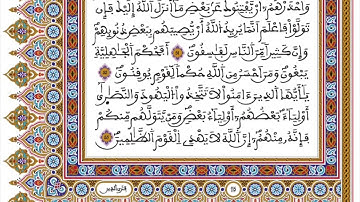 وَاحْذَرْهُمْ أَن يَفْتِنُوكَ عَن بَعْضِ مَا أَنزَلَ اللَّهُ إِلَيْكَ فَإِن
تَوَلَّوْا فَاعْلَمْ أَنَّمَا يُرِيدُ اللَّهُ أَن يُصِيبَهُم بِبَعْضِ ذُنُوبِهِمْ
وَإِنَّ كَثِيرًا مِّنَ النَّاسِ لَفَاسِقُونَ أَفَحُكْمَ الْجَاهِلِيَّةِ
يَبْغُونَ وَمَنْ أَحْسَنُ مِنَ اللَّهِ حُكْمًا لِّقَوْمٍ يُوقِنُونَ
يَا أَيُّهَا الَّذِينَ آمَنُوا لَا تَتَّخِذُوا الْيَهُودَ وَالنَّصَارَى
أَوْلِيَاءَ بَعْضُهُمْ أَوْلِيَاءُ بَعْضٍ وَمَن يَتَوَلَّهُم مِّنكُمْ
فَإِنَّهُ مِنْهُمْ إِنَّ اللَّهَ لَا يَهْدِي الْقَوْمَ الظَّالِمِينَ